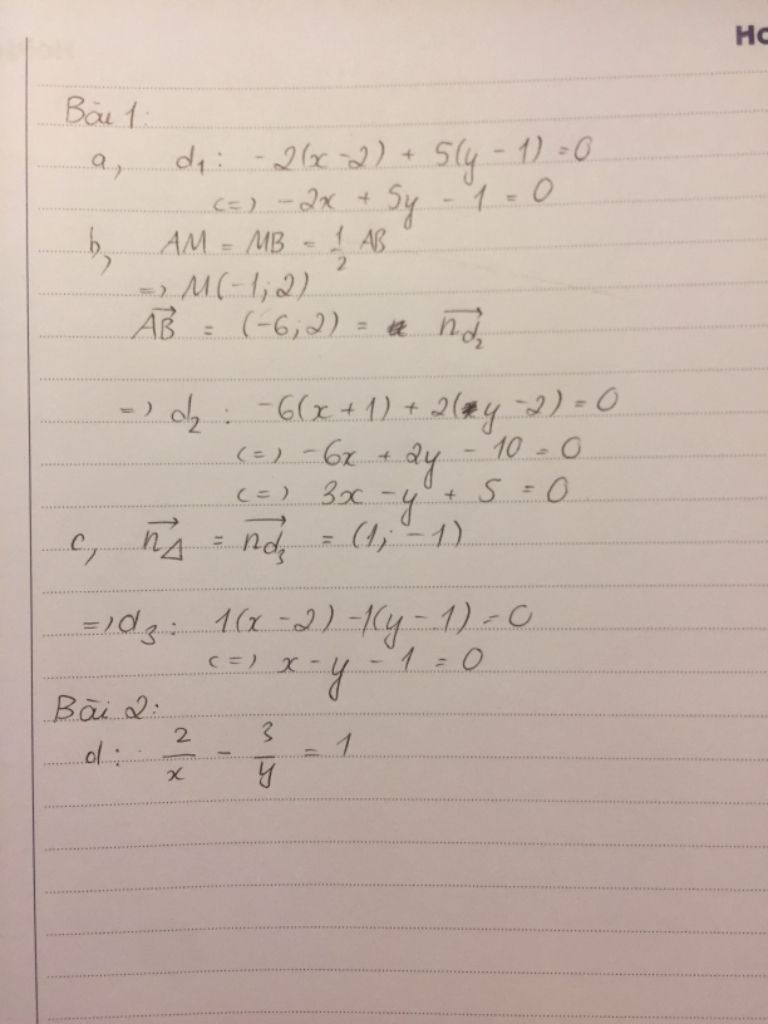 Bài 1:
a, d₁: -2(x-2) + 5(y-1)=0
<=> -2x + 5y - 1 = 0
b, AM = MB = 1/2 AB
=> M(-1;2)
\overrightarrow{AB} = (-6;2) = \overrightarrow{n_{d_2}}
=> d₂: -6(x+1) + 2(y-2)=0
<=> -6x + 2y - 10 = 0
<=> 3x - y + 5 = 0
c, \overrightarrow{n_Δ} = \overrightarrow{n_{d_3}} = (1;-1)
=> d₃: 1(x-2) -1(y-1)=0
<=> x - y - 1 = 0
Bài 2:
d: 2/x - 3/y = 1